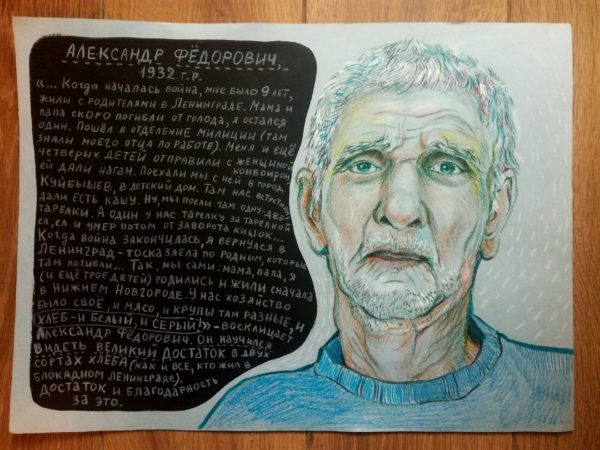 АЛЕКСАНДР ФЁДОРОВИЧ,
1932 г.р.
«... Когда началась война, мне было 9 лет,
жили с родителями в Ленинграде. Мама и
папа скоро погибли от голода, я остался
один. Пошёл в отделение милиции (там
знали моего отца по работе). Меня и ещё
четверых детей отправили с женщиной
конвоиром
ей дали наган. Поехали мы с ней в город
Куйбышев, в детский дом. Там нас встретили,
дали есть кашу. Ну, мы поели там одну-две
тарелки. А один у нас тарелку за тарелкой
ел, ел и умер потом от заворота кишок...
Когда война закончилась, я вернулся в
Ленинград - тоска заела по родным, которые
там погибли... Так, мы сами: мама, папа, я
(и ещё трое детей) родились и жили сначала
в Нижнем Новгороде. У нас хозяйство
было своё, и мясо, и крупы там разные, и
хлеб - и белый, и серый!» - восклицает
Александр Фёдорович. Он научился
видеть великий достаток в двух
сортах хлеба (как и все, кто жил в
блокадном Ленинграде).
Достаток и благодарность
за это.